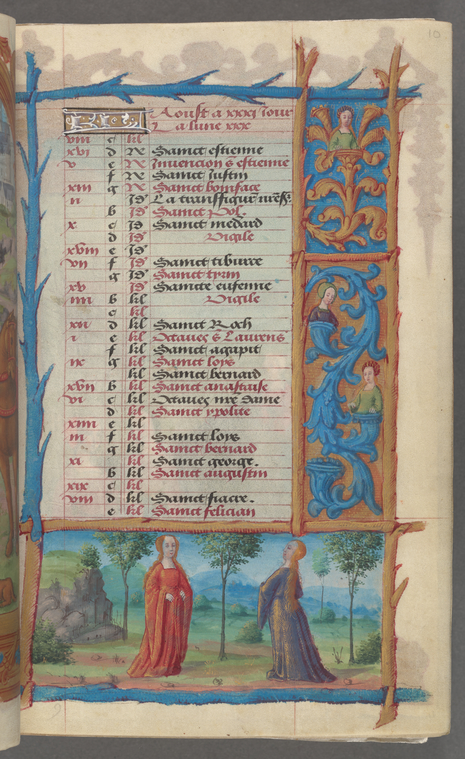 10
Aoust a xxxi iour
a lune xxx
viii c kl
xvi d N Sainct estienne
v e N Invencion s estienne
f N Sainct iustin
xiii g N Sainct boniface
ii Id La transfigur
b Id Sainct
x c Id Sainct medard
d Id Vigile
xviii e Id
vii f Id Sainct tiburce
g Id Sainct
xv Id Saincte eusenne
iiii b kl Vigile
c kl
xii d kl Sainct Roch
i e kl Octaves s Laurens
f kl Sainct agapit
ix g kl Sainct loys
kl Sainct bernard
xvii b kl Sainct anastaise
vi c kl Octaves nre dame
d kl Sainct ypolite
xiiii e kl
iii f kl Sainct loys
g kl Sainct bernard
xi kl Sainct george.
b kl Sainct augustin
xix c kl
viii d kl Sainct fiacre.
e kl Sainct felician